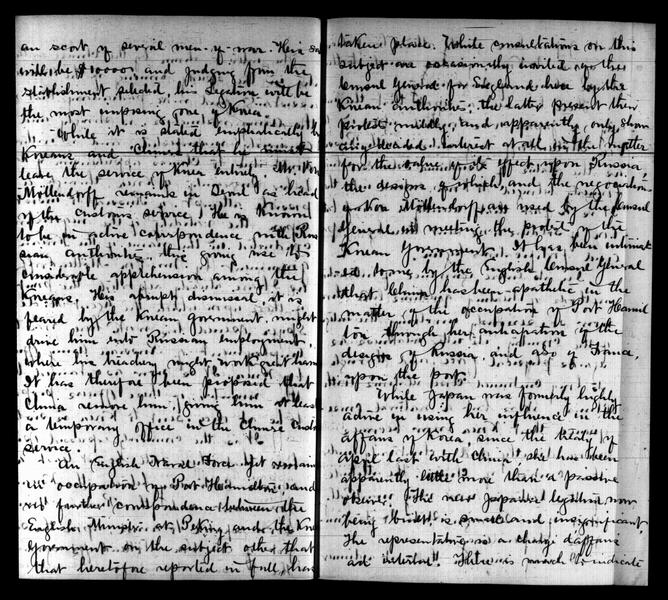 an escort of several men-of-war. His sa
will be $10000 and judging from the
establishment selected his Legation will be
the most imposing one of Korea.
While it is stated emphatically
Koreans and Chinese that he
leave the service of Korea entirely Mr Von
Mollendorff remains in Seoul as head
of the customs service. He is known
to be in active correspondence with Rus
sian authorities thus giving rise to
considerable apprehension among the
Koreans. His abrupt dismissal it is
feared by the Korean government might
drive him into Russian employment
where his treachery might work great harm.
It has therefore been proposed that
China remove him, giving him at least
a temporary office in the Chinese Customs
service.
An English Naval Force yet remains
in occupation of Port Hamilton and
no further correspondence between the
English Minister at Peking and the Korean
Government on the subject other that
that heretofore reported in full, has
taken place. While consultations on this
subject are occasionally invited
Consul General for England here by the
Korean authorities: the latter present their
protest mildly, and apparently only show
any decided interest at all in the matter
for the value of its effect upon Russia,
the designs of which and the negociation
of Von Mollendorff are used by the Consul
General in meeting the protest of the
Korean Government. It has been intimat
ed to me by the English Consul General
that China has been apathetic in the
matter of the occupation of Port Hamil
ton through her anticipation of the
designs of Russia, and also of France,
upon the port.
While Japan was formerly highly
active in using her influence in the
affairs of Korea, since the treaty of
April last with China she has been
apparently little more than a passive
observer. The new Japanese legation now
being built is small and insignificant.
The representative is a chargé d'affaires
ad interim. There is much to indicate